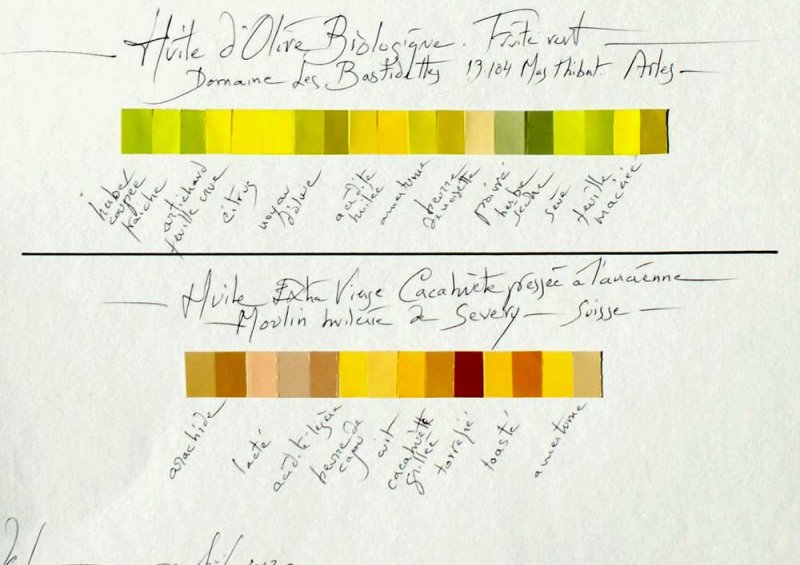 Huile d'Olive Biologique. Fruité vert
Domaine Les Bastidettes 13.104 Mas Thibert. Arles
herbe
coupée
fraîche
artichaud
feuille crue
citrus
noyau
d'olive
acidité
huilée
amertume
beurre
de noisette
poivré
herbe
sèche
sève
feuille
macérée
Huile Extra Vierge Cacahuète pressée à l'ancienne
Moulin huilerie de Severy Suisse
arachide
lacté
acidité légère
beurre de
cajou
cuit
cacahuète
grillée
torréfié
toasté
amertume